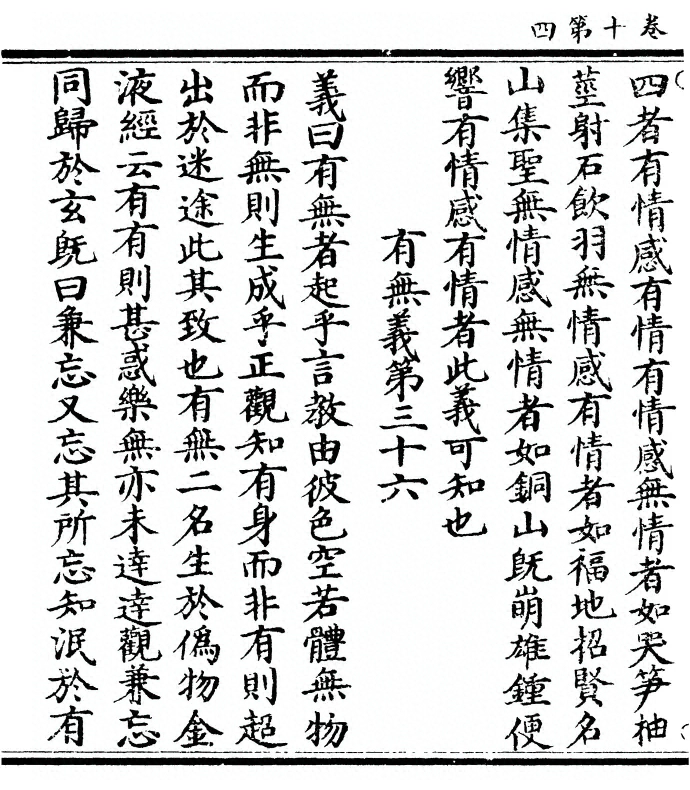 卷十第四
四者有情感有情有情感無情者如哭笋抽
莖射石飲羽無情感有情者如福地招賢名
山集聖無情感無情者如銅山旣崩雄鍾便
響有情感有情者此義可知也
有無義第三十六
義曰有無者起乎言教由彼色空若體無物
而非無則生成乎正觀知有身而非有則超
出於迷途此其致也有無二名生於僞物金
液經云有有則甚惑樂無亦未達達觀兼忘
同歸於玄旣曰兼忘又忘其所忘知泯於有